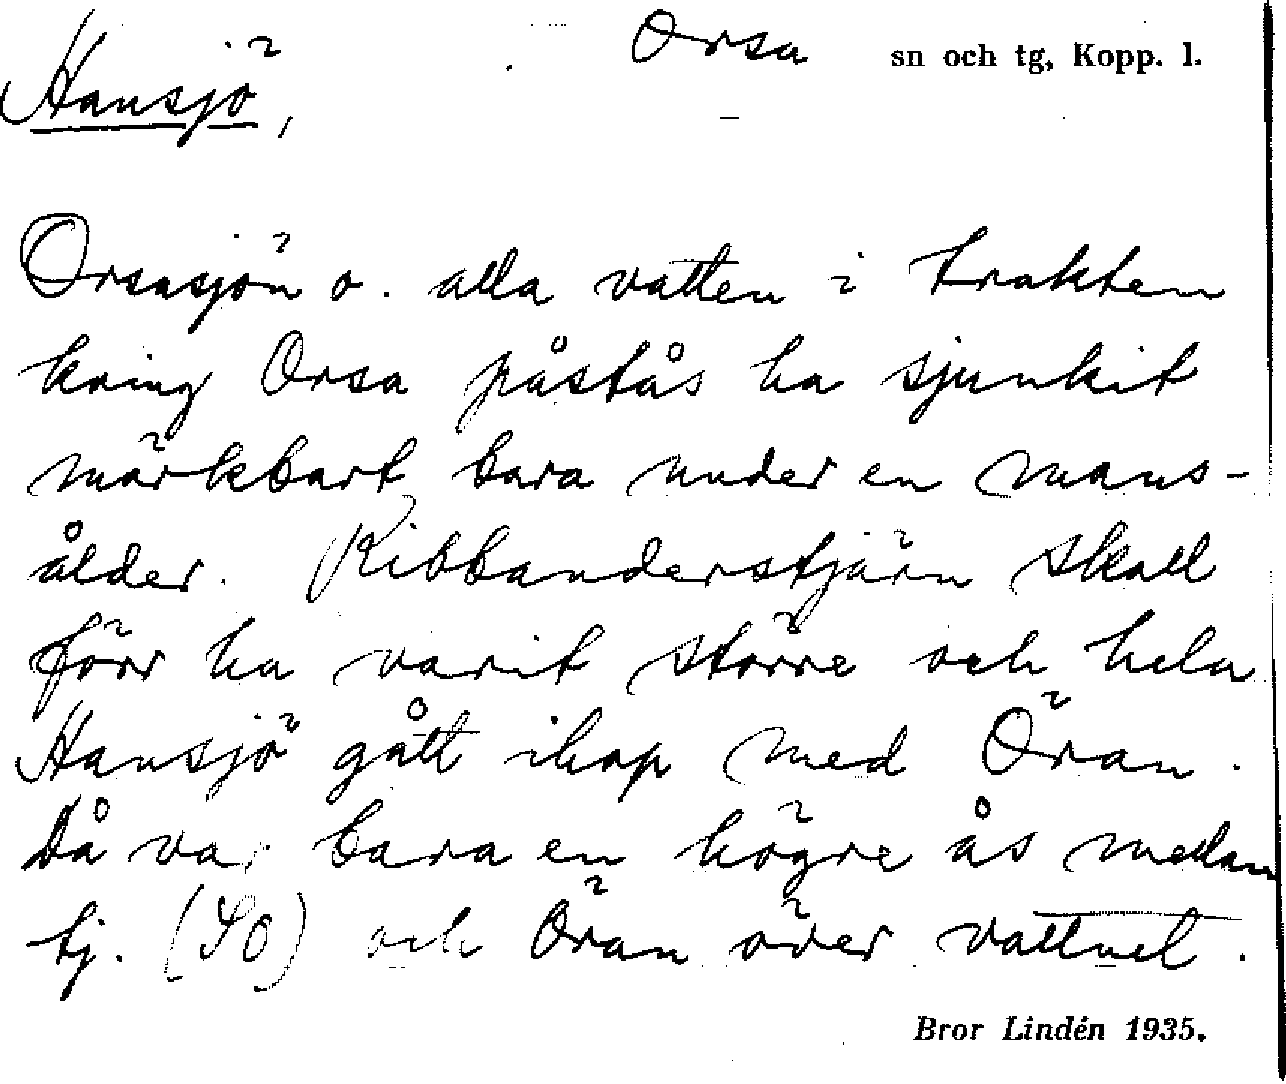 Orsa sn och tg, Kopp. l.
Hansjö,
Orsasjön o. alla vatten i trakten
kring Orsa påstås ha sjunkit
märkbart bara under en mans-
ålder. Ribbanderstjärn skall
förr ha varit större och hela
Hansjö gått ihop med Öran.
Då var bara en högre ås mellan
tj. (SO) och Öran över vattnet.
Bror Lindén 1935.